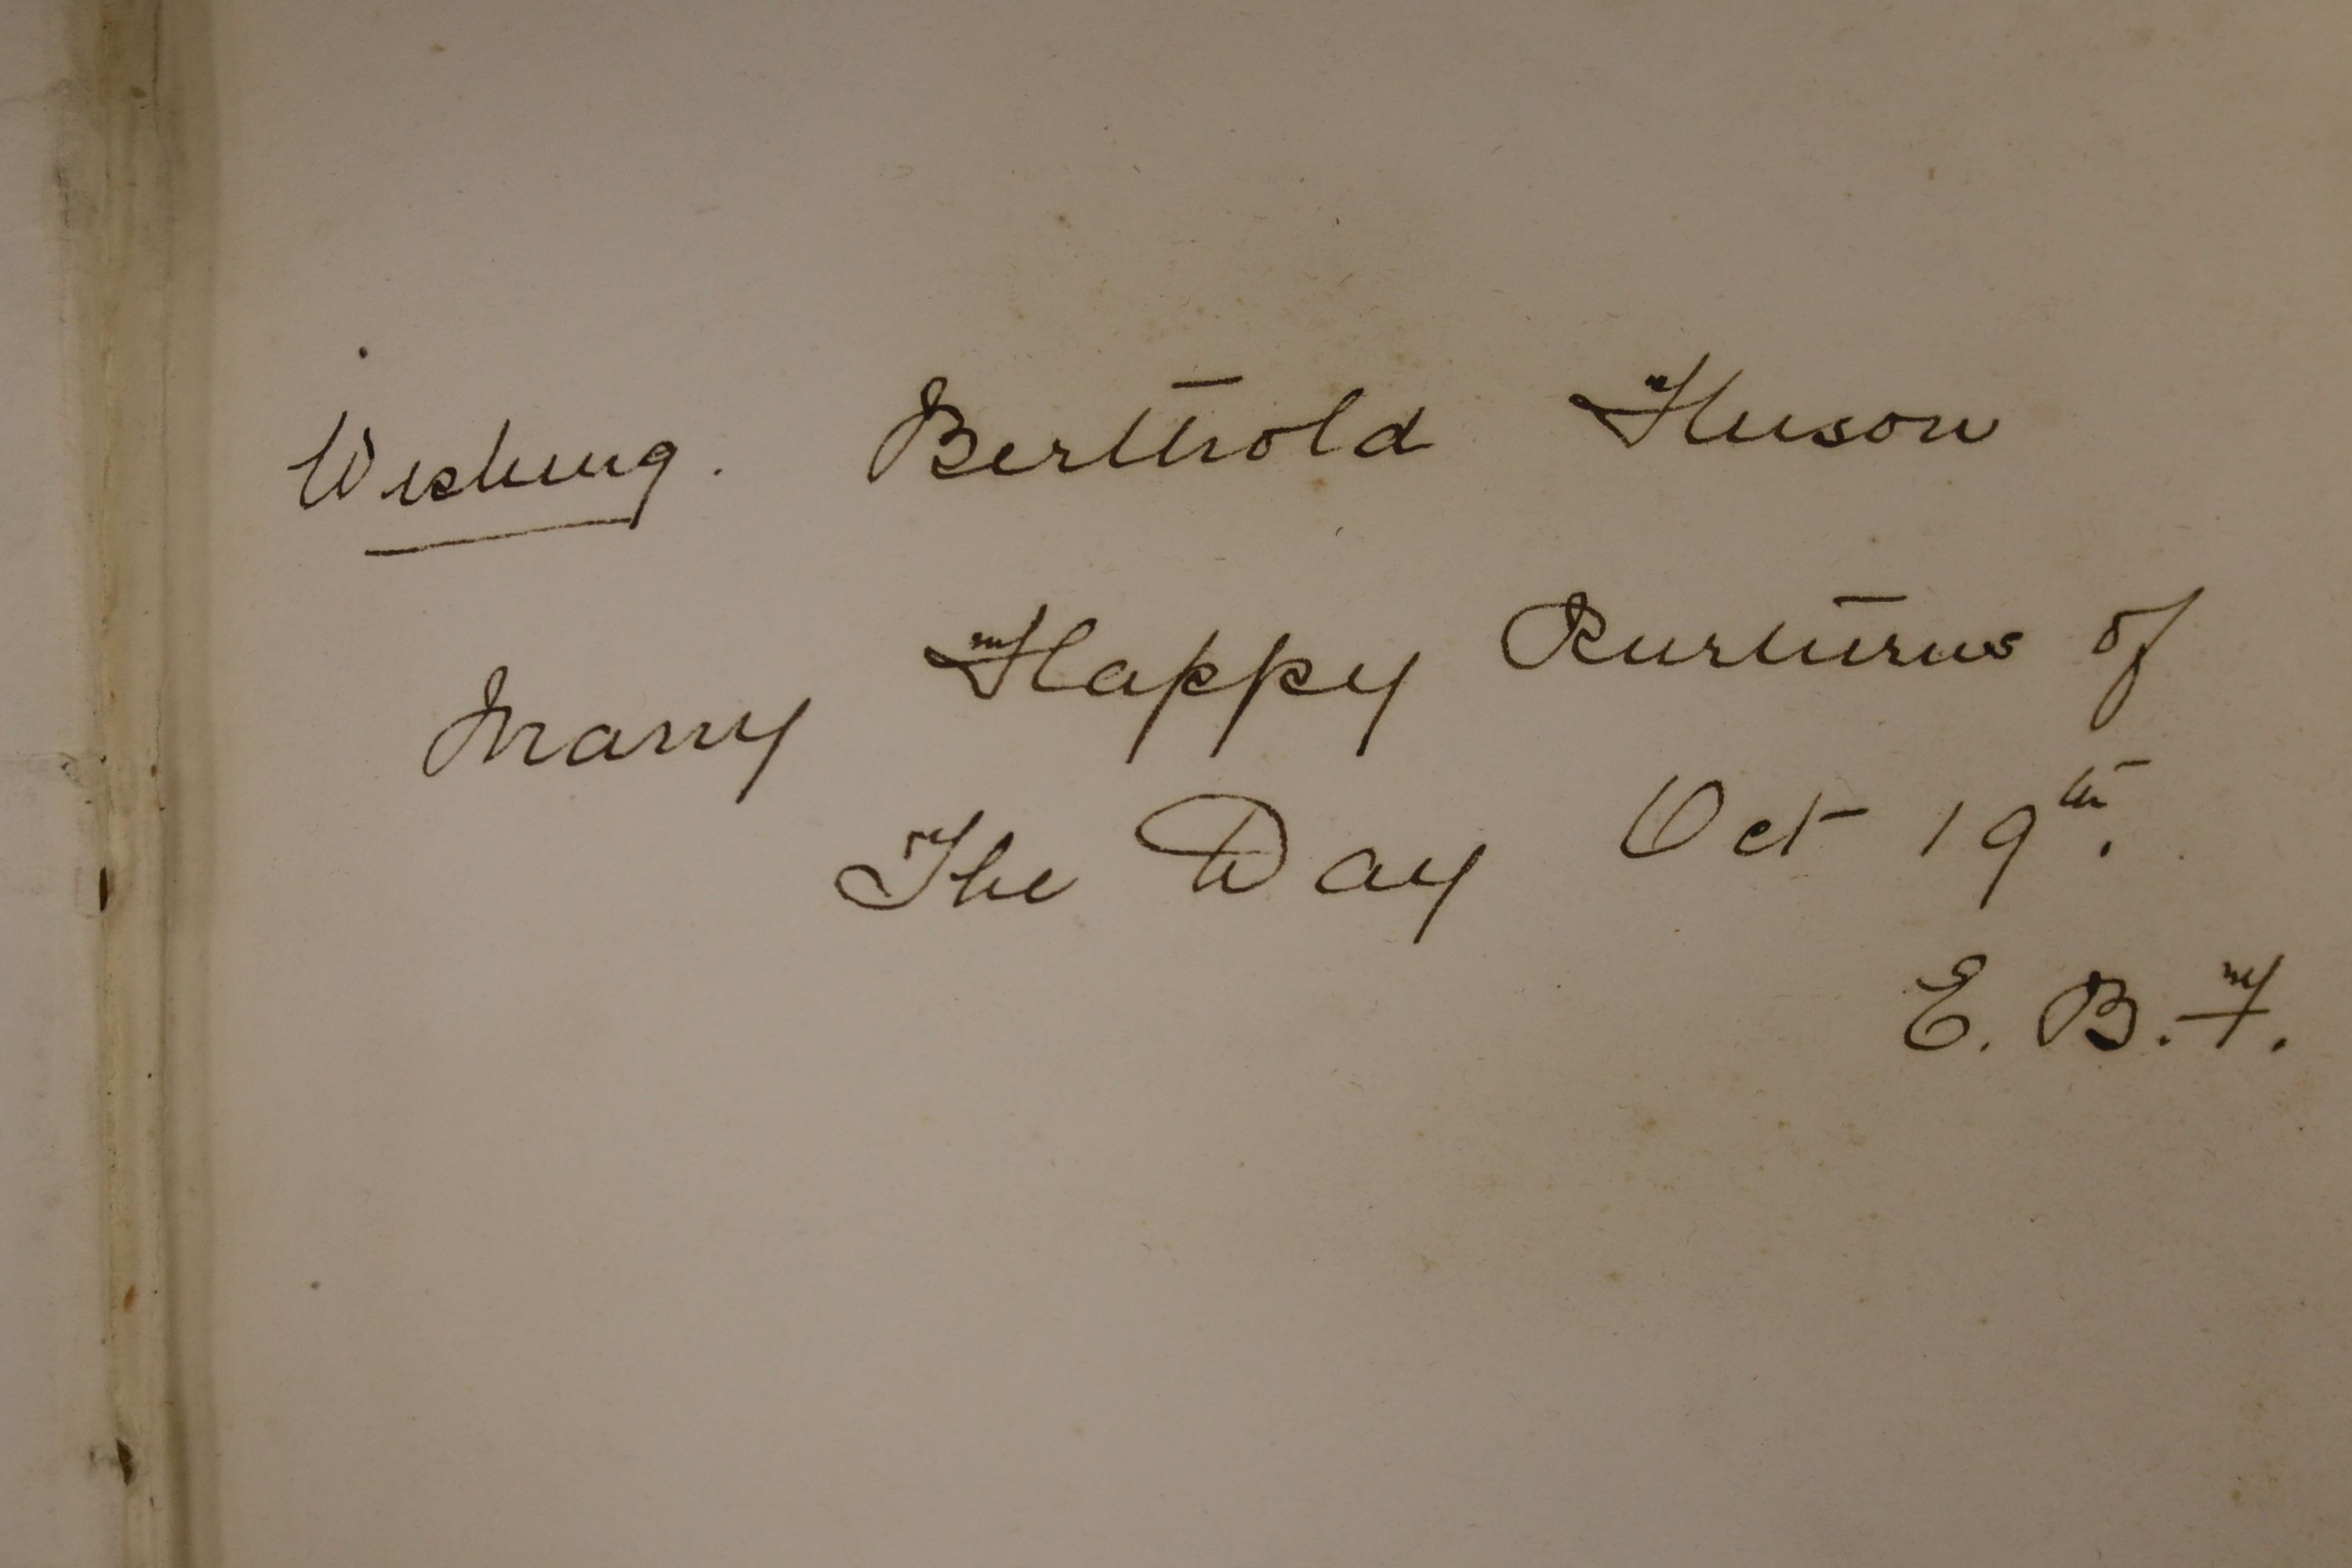 Wishing. Berthold Huson
Many Happy Rurturns of
The Day Oct 19th.
E. B. F.